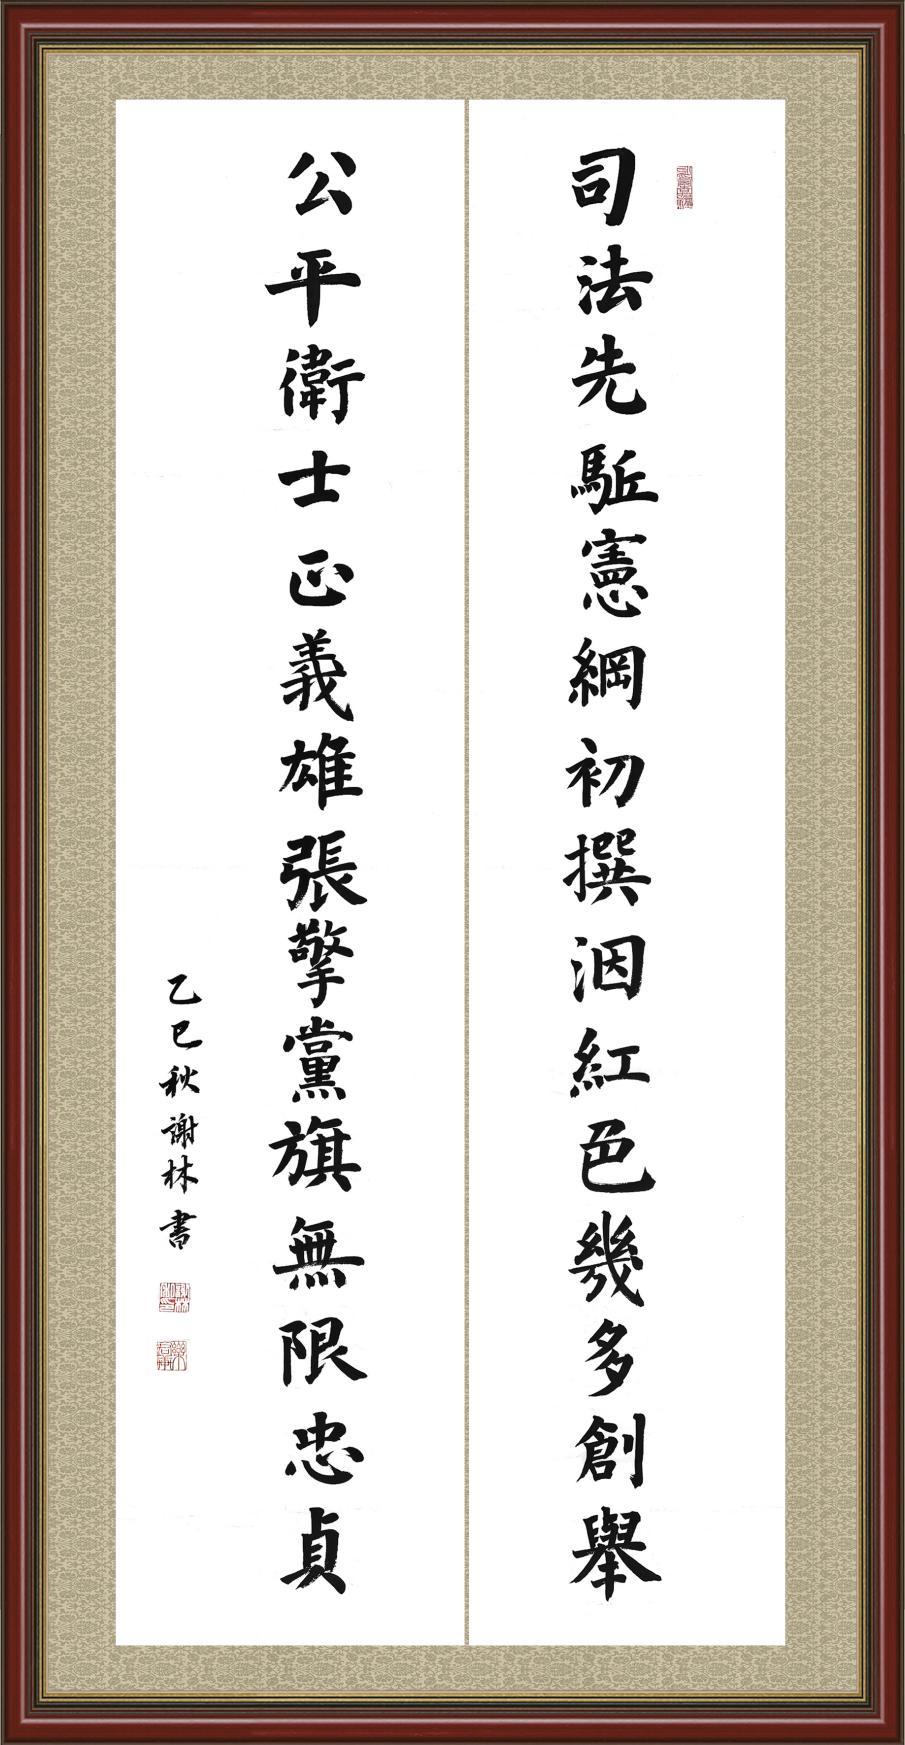 司法先駈憲綱初撰洇紅色幾多創舉
公平衛士正義雄張擎黨旗無限忠貞
乙巳秋謝林書